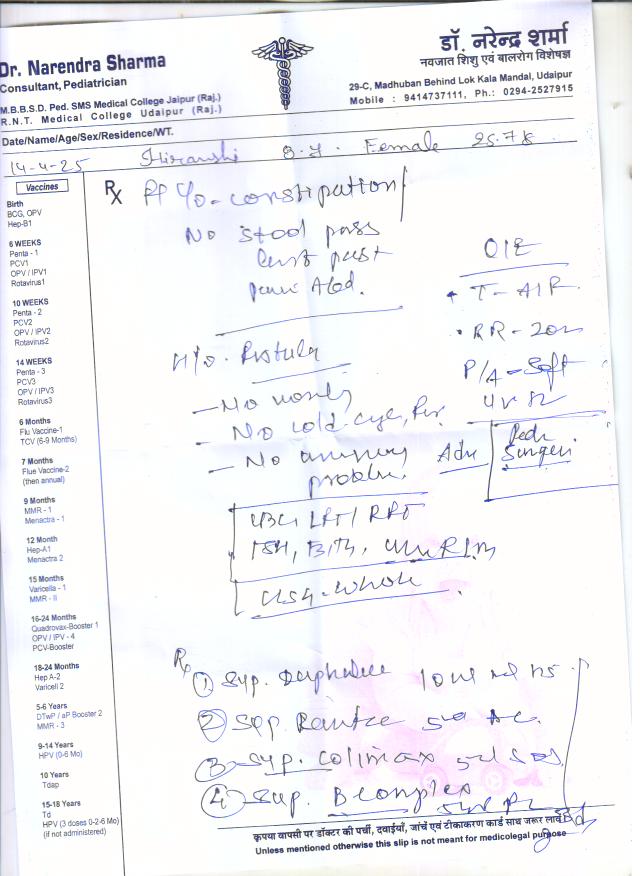 Dr. Narendra Sharma
Consultant, Pediatrician
M.B.B.S.D. Ped. SMS Medical College Jaipur (Raj.)
R.N.T. Medical College Udaipur (Raj.)
डॉ. नरेन्द्र शर्मा
नवजात शिशु एवं बालरोग विशेषज्ञ
29-C, Madhuban Behind Lok Kala Mandal, Udaipur
Mobile : 9414737111, Ph.: 0294-2527915
Date/Name/Age/Sex/Residence/WT.
14-4-25 Female
Vaccines
Birth
BCG, OPV
Hep-B1
6 WEEKS
Penta - 1
PCV1
OPV / IPV1
Rotavirus1
10 WEEKS
Penta - 2
PCV2
OPV / IPV2
Rotavirus2
14 WEEKS
Penta - 3
PCV3
OPV / IPV3
Rotavirus3
6 Months
Flu Vaccine-1
TCV (6-9 Months)
7 Months
Flue Vaccine-2
(then annual)
9 Months
MMR - 1
Menactra - 1
12 Month
Hep-A1
Menactra 2
15 Months
Varicella - 1
MMR - II
16-24 Months
Quadrovax-Booster 1
OPV / IPV - 4
PCV-Booster
18-24 Months
Hep A-2
Varicell 2
5-6 Years
DTwP / aP Booster 2
MMR - 3
9-14 Years
HPV (0-6 Mo)
10 Years
Tdap
15-18 Years
Td
HPV (3 doses 0-2-6 Mo)
(if not administered)
Rx c/o - constipation
No stool pass
last past
pain Abd.
O/E
RR - 20
P/A - Soft
H/o - Fistula
- No
- No cold
- No
problem.
Adv Pedi
Surgeon
CBC, LFT/RFT
TSH,
USG - Whole
Rx
1 Syp. 10 ml
2 Syp.
3 Syp. Colimax
4 Syp. B complex
कृपया वापसी पर डॉक्टर की पर्ची, दवाईयाँ, जांचें एवं टीकाकरण कार्ड साथ जरूर लावें
Unless mentioned otherwise this slip is not meant for medicolegal purpose